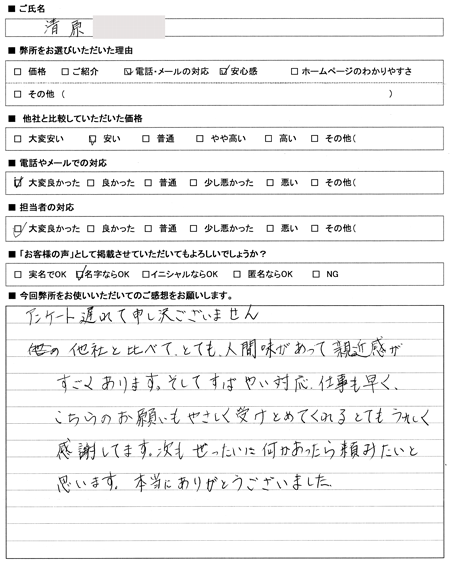 ■ ご氏名
清原
■ 弊所をお選びいただいた理由
□ 価格 □ご紹介 ☑ 電話・メールの対応 ☑安心感 □ホームページのわかりやすさ
□ その他 ( )
■ 他社と比較していただいた価格
□ 大変安い ☑ 安い □ 普通 □ やや高い □ 高い □ その他(
■ 電話やメールでの対応
☑ 大変良かった □ 良かった □ 普通 □ 少し悪かった □ 悪い □ その他(
■ 担当者の対応
☑ 大変良かった □ 良かった □ 普通 □ 少し悪かった □ 悪い □ その他(
■ 「お客様の声」として掲載させていただいてもよろしいでしょうか？
□ 実名でOK ☑名字ならOK □イニシャルならOK □ 匿名ならOK □ NG
■ 今回弊所をお使いいただいてのご感想をお願いします。
アンケート遅れて申し訳ございません
他社と比べて、とても、人間味があって親近感が
すごくあります。そしてすばやい対応、仕事も早く、
こちらのお願いもやさしく受けとめてくれるとてもうれしく
感謝してます。次もぜったいに何かあったら頼みたいと
思います。本当にありがとうございました。